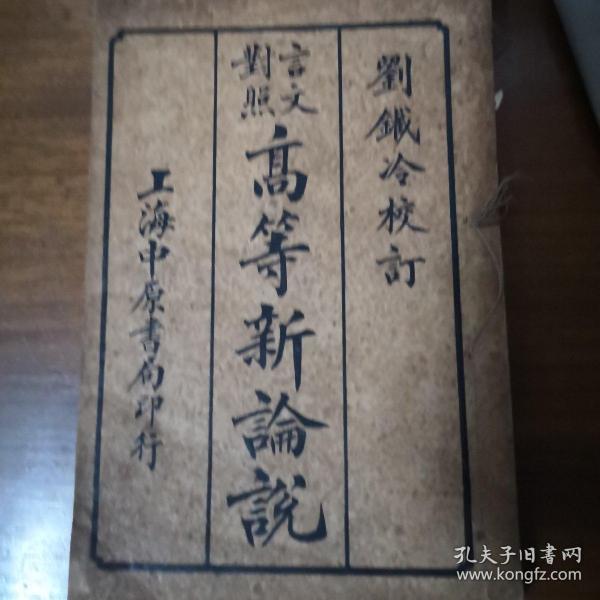 劉鐵冷校訂
言文對照
高等新論說
上海中原書局印行
孔夫子旧書网
www.kongfz.com